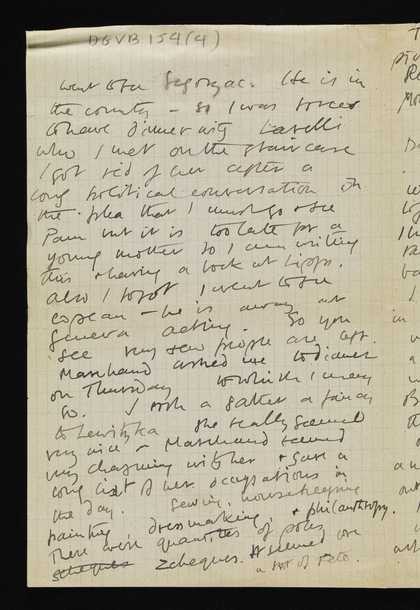 DGVB 154(4)
went to see Segonzac. He is in
the country – so I was forced
to have dinner with
who I met on the staircase
I got rid of her after a
long political conversation on
the plea that I must go & see
Pam but it is too late for a
young mother so I am writing
this & having a bock at Lipps.
Also I forgot I went to see
copeau – he is away at
Geneva acting. So you
see very few people are left.
Marchand asked me to dinner
on Thursday to which I may
go. I took a rather a fancy
to Lewitzka she really seemed
very nice & Marchand seemed
very charming with her & gave a
long list of her occupations in
the day. Sewing, housekeeping
painting, dressmaking & philanthropy.
There were quantities of poles
Zcheques. It seemed
a sort of fete.
in